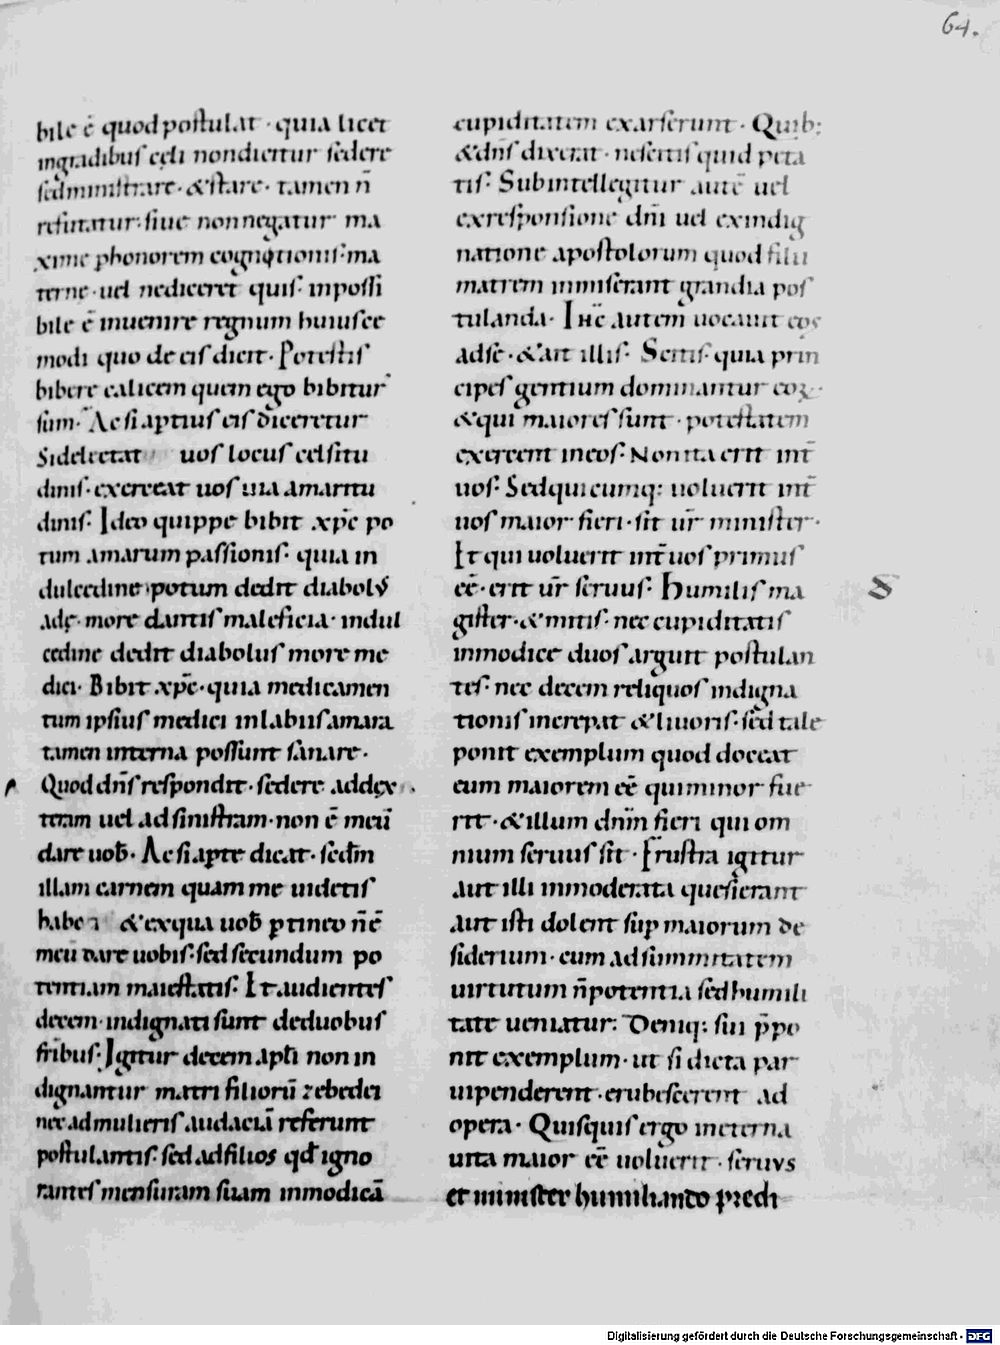 64.
bile ē quod postulat · quia licet
ingradibus cęli nondicitur sedere
sedministrare · &stare · tamen n̄
refutatur · siue nonnegatur ma
xime phonorem cognitionis · ma
ternę · uel nediceret quis · inpossi
bile ē inuenire regnum huiusce
modi quo de eis dicit · Potestis
bibere calicem quem ego bibitur
sum · Ac si aptius eis diceretur
Sidelectat uos locus celsitu
dinis · exerceat uos uia amaritu
dinis · Ideo quippe bibit xp̄c po
tum amarum passionis · quia in
dulcedine potum dedit diabolus
adę · more dantis maleficia · indul
cedine dedit diabolus more me
dici · Bibit xp̄c · quia medicamen
tum ipsius medici inlabiis amara
tamen interna possunt sanare ·
Quod dn̄s respondit · sedere addex
teram uel ad sinistram · non ē meū
dare uob̄ · Ac si apte dicat · sedm̄
illam carnem quam me uidetis
habe &exqua uob̄ ptineo n̄ē
meū dare uobis · sed secundum po
tentiam maiestatis · Et audientes
decem · indignati sunt deduobus
frībus · Igitur decem apl̄i non in
dignantur matri filiorū zebedei
nec ad mulieris audaciā referunt
postulantis · sed adfilios qđ igno
rantes mensuram suam inmodicā
cupiditatem exarserunt · Quib;
&dn̄s dixerat · nescitis quid peta
tis · Subintellegitur autē uel
exresponsione dn̄i uel exindig
natione apostolorum quod filii
matrem inmiserant grandia pos
tulanda · Ihc̄ autem uocauit eos
adse · &ait illis · Scitis · quia prin
cipes gentium dominantur eoꝝ ·
&qui maiores sunt · potestatem
exercent ineos · Non ita erit int̄
uos · Sedquicumq; uoluerit int̄
uos maior fieri · sit ur̄ minister ·
Et qui uoluerit int̄ uos primus
eē · erit ur̄ seruus · Humilis ma
gister · &mitis · nec cupiditatis
inmodice duos arguit postulan
tes · nec decem reliquos indigna
tionis increpat &liuoris · sed tale
ponit exemplum quod doceat
eum maiorem eē quiminor fue
rit · &illum dnm̄ fieri qui om
nium seruus sit · Frustra igitur
aut illi inmoderata quesierant
aut isti dolent sup maiorum de
siderium · cum ad summitatem
uirtutum n̄potentia sedhumili
tate ueniatur : Deniq; sui p̄po
nit exemplum · ut si dicta par
uipenderent · erubescerent ad
opera · Quisquis ergo ineterna
uita maior eē uoluerit · seruus
et minister humiliando predi
Digitalisierung gefördert durch die Deutsche Forschungsgemeinschaft · DFG